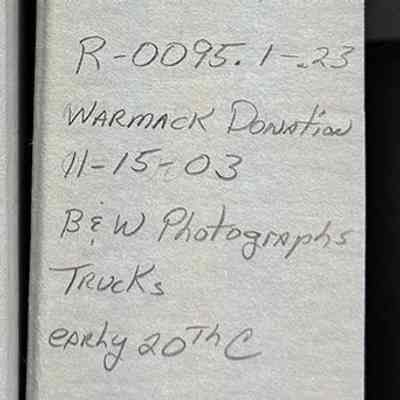 R-0095.1-.23
WARMACK DONATION
11-15-03
B & W Photographs
TRUCKS
EARLY 20Th C